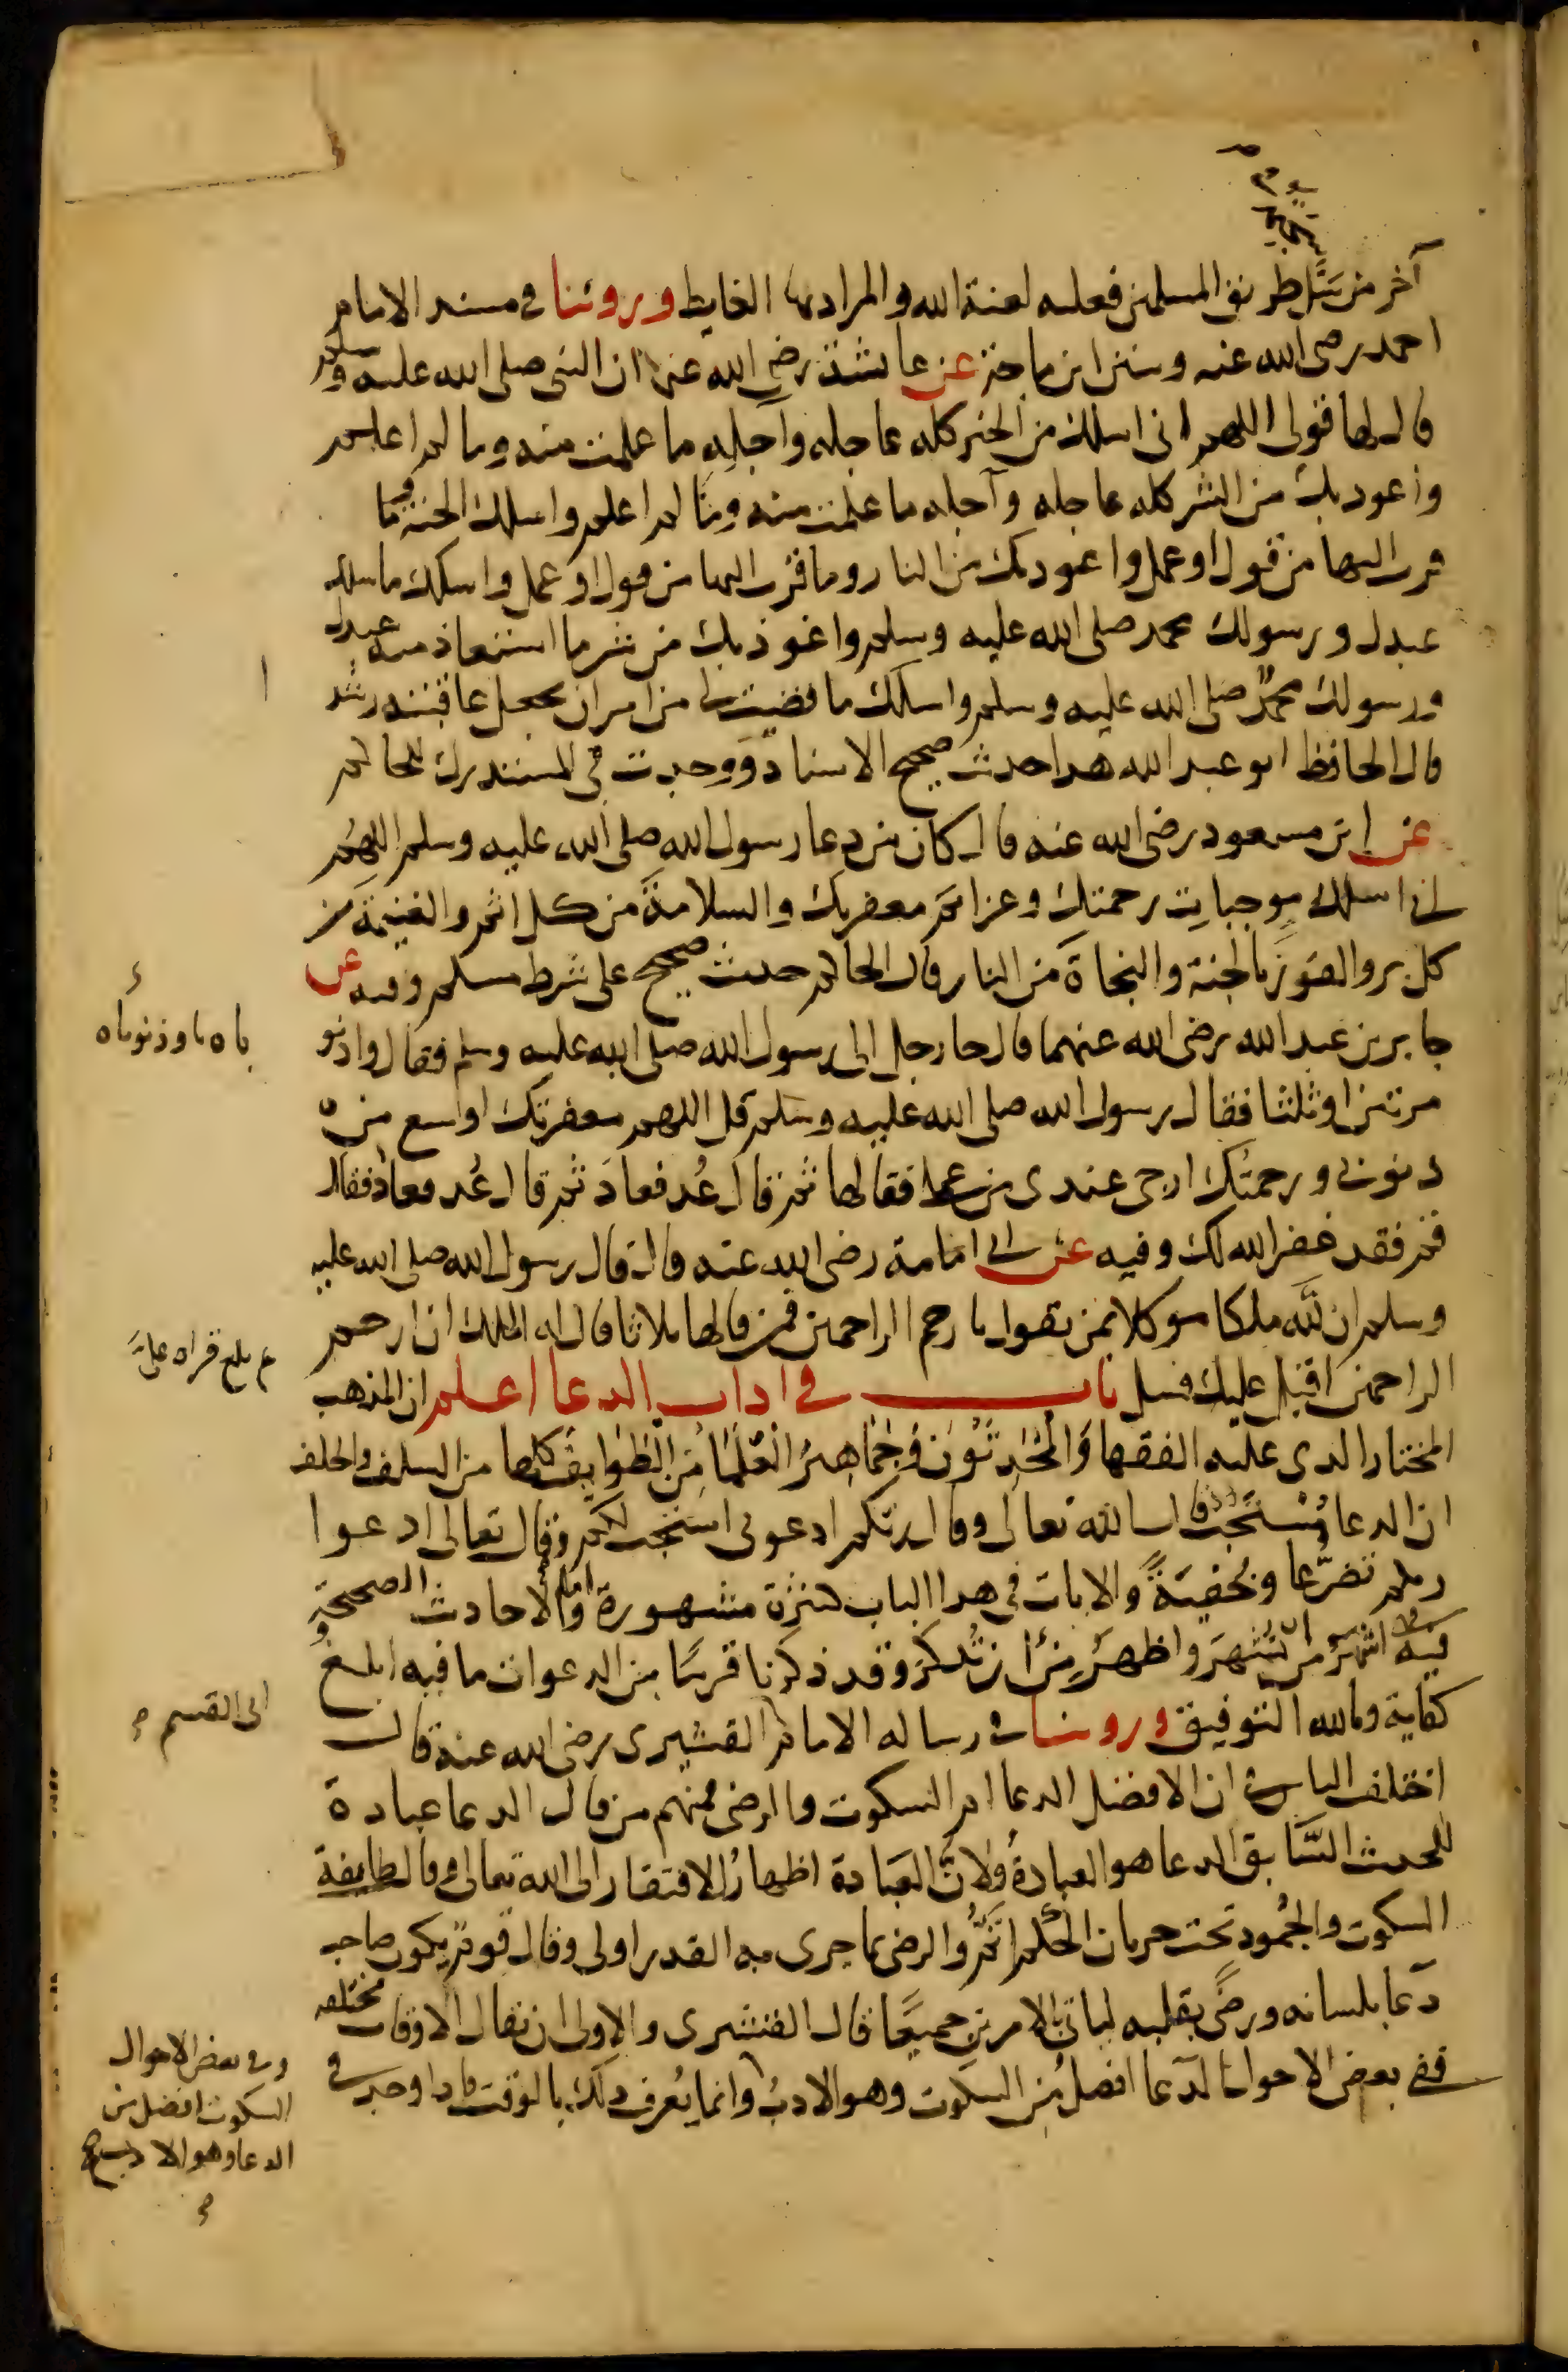 آخر من سَلَّ طريق المسلمين فعليه لعنة الله والمراد بها الغايط وروينا في مسند الامام
احمد رضي الله عنه وسنن ابن ماجة عن عايشة رضي الله عنها ان النبي صلى الله عليه وسلم
قال لها قولي اللهم اني اسلك من الخير كله عاجله وآجلِه ما علمت منه وما لم اعلم
واعوذ بك من الشر كله عاجله وآجله ما علمت منه وما لم اعلم واسلك الجنة وما
قرب اليها من قول او عمل واعوذ بك من النار وما قرب اليها من قول او عمل واسلك ما سلك
عبدك ورسولك محمد صلى الله عليه وسلم واعوذ بك من شر ما استعاذ منه عبدك
ورسولك محمدٌ صلى الله عليه وسلم واسلك ما قضيت لي من امر ان تجعل عاقبته رشدا
قال الحافظ ابو عبد الله هذا حديث صحيح الاسناد ووجدت في المستدرك للحاكم
عن ابن مسعود رضي الله عنه قال كان من دعا رسول الله صلى الله عليه وسلم اللهم
اني اسلك موجباتِ رحمتك وعزائم مغفرتك والسلامةَ من كل اثم والغنيمة من
كل بر والفوزَ بالجنة والنجاةَ من النار قال الحاكم حديث صحيح على شرط مسلم وفيه عن
جابر بن عبد الله رضي الله عنهما قال جا رجل الى رسول الله صلى الله عليه وسلم فقال واذنو
مرتين او ثلثا فقال رسول الله صلى الله عليه وسلم قل اللهم مغفرتك اوسع من
ذنوبي ورحمتُك ارجى عندي من عملي فقالها ثم قال عُد فعادَ ثم قال عُد فعاد فقال
قم فقد غفر الله لك وفيه عن ابي امامة رضي الله عنه قال قال رسول الله صلى الله عليه
وسلم ان للّه ملكا موكلا بمن يقول يا ارحم الراحمين فمن قالها ثلاثا قال له الملك ان ارحم
الراحمين اقبل عليك فسل باب في اداب الدعا اعلم ان المذهب
المختار الذي عليه الفقها وَالمُحَدِّثُون وَجَماهِيرُ العُلَمَا مِنَ الطَّوَايِف كلها من السلف والخلف
ان الدعا مُسْتَحَبٌّ قال الله تعالى وقال ربكم ادعوني استجب لكم وقال تعالى ادعوا
ربكم تضرُّعا وخُفيَةً والايات في هذا الباب كثيرَة مشهورة واما الاحاديث الصحيحة
فيه فهي اشهرُ من ان تُشهرَ واظهرُ مِن ان تُذكرَ وقد ذكرنا قريبًا من الدعوات ما فيه ابلغ
كفاية وبالله التوفيق وروينا في رسالة الامام القشيري رضي الله عنه قال
اختلف الناس في ان الافضل الدعا ام السكوت والرضى فمنهم من قال الدعا عبادة
للحديث السَّابق الدعا هو العبادةُ ولانَّ العبَادة اظهارُ الافتقار الى الله تعالى وقال طايفة
السكوت والجُمود تحت جريان الحُكم اتَمُّ والرضى بما جرى به القدر اولى وقال قوم يكون صاحب
دَعا بلسانه ورضًى بقلبه لياتي بالامرين جميعًا قال القشيري والاولى ان يقال الاوقات مختلفه
ففي بعض الاحوال الدَعا افضلُ مِن السكوت وهو الادبُ وانما يُعرف ذلك بالوقت فاذا وجد في
باه واذنوباه
بلغ قراه علىَّ
ابي القسم
وفي بعض الاحوال
السكوت افضل من
الدعا وهو الادب صح